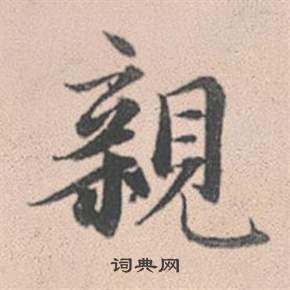 親
词典网